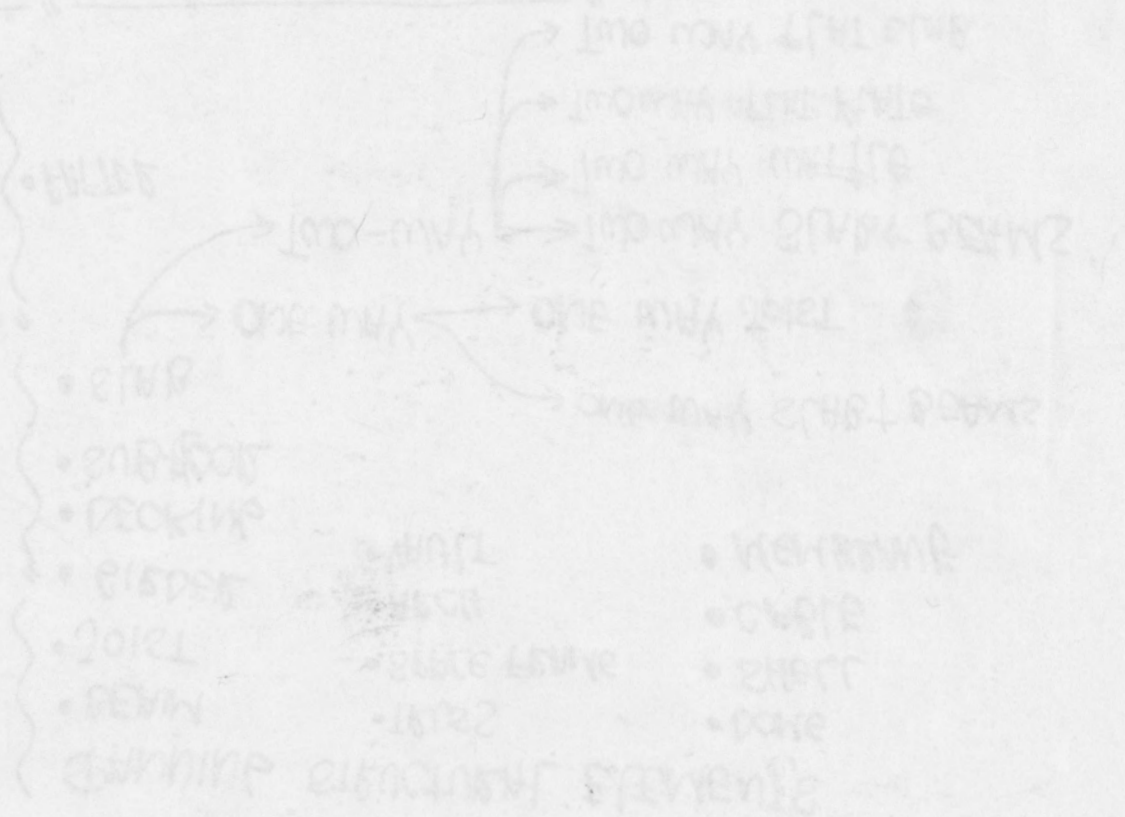 SPANNING STRUCTURAL ELEMENTS
• BEAM
• JOIST
• GIRDER
• DECKING
• SUBFLOOR
• SLAB
• TRUSS
• SPACE FRAME
• ARCH
• VAULT
• DOME
• SHELL
• CABLE
• MEMBRANE
→ ONE WAY
→ ONE WAY SLAB + BEAMS
→ ONE WAY JOIST
→ TWO-WAY
→ TWO WAY SLAB + BEAMS
→ TWO WAY WAFFLE
→ TWO WAY FLAT PLATE
→ TWO WAY FLAT SLAB